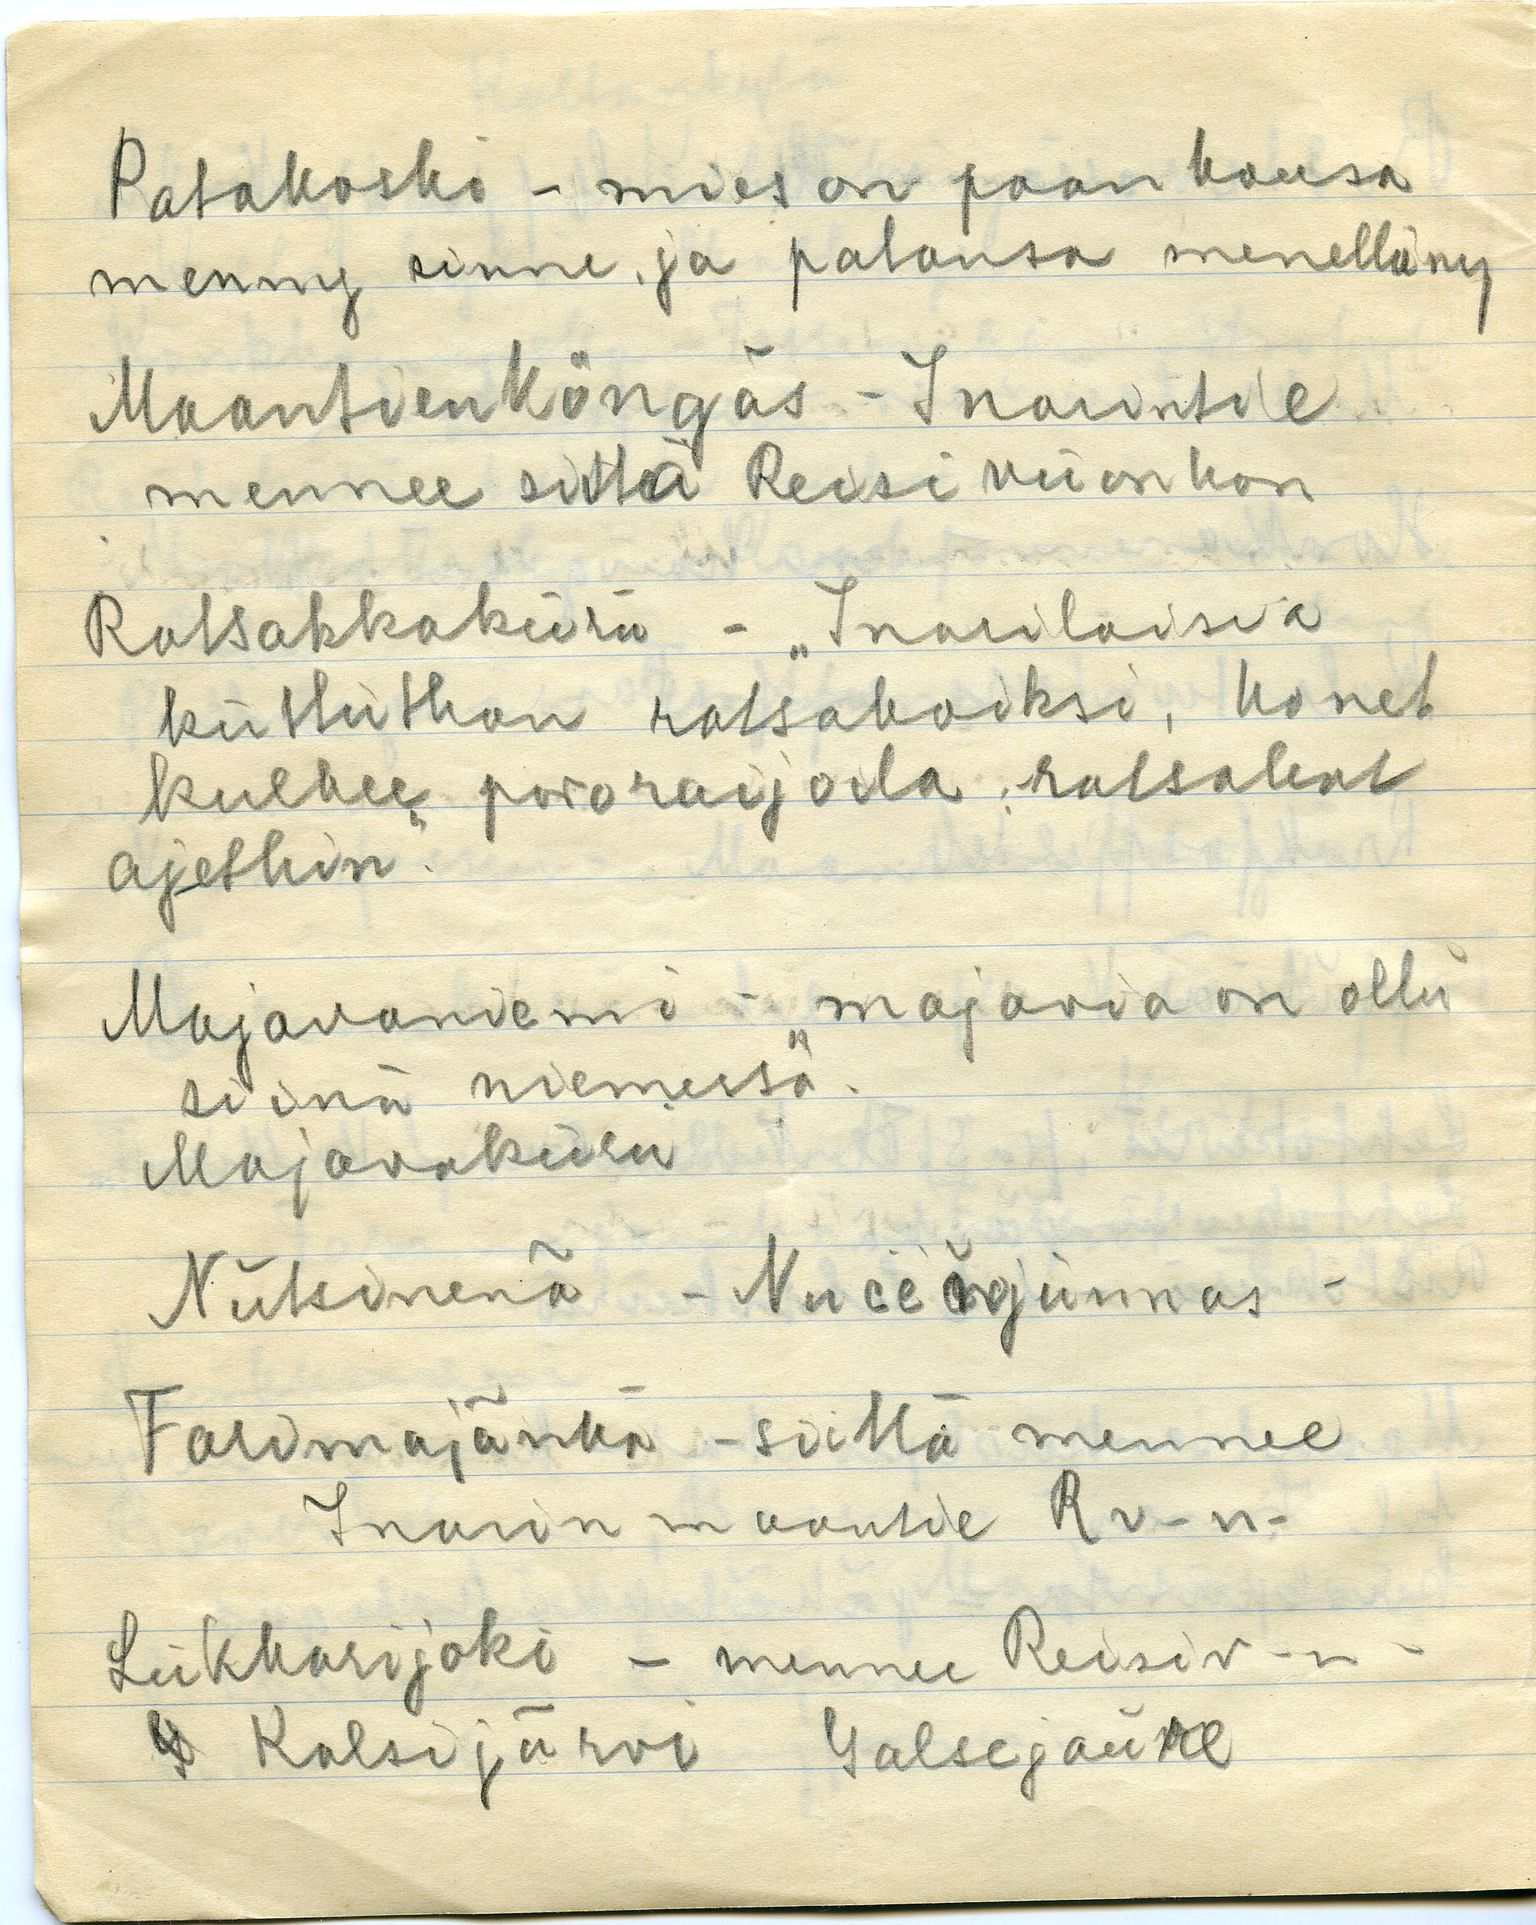 Patakoski – mies on paan kansa
menny sinne, ja patansa menettäny
Maantienköngäs – Inarintie
mennee siittä Reisivuonhon
Ratsakkakuru – „Inarilaisia
kuttuthan ratsakoiksi, konet
kulkee pororaijoila, ratsakat
ajethin".
Majavaniemi – „majavia on ollu
siinä niemessä".
Majavakuru
Nutsinenä – Nučč njunnas –
Farimajänkä – siittä mennee
Inarin maantie Rv-n-
Liikkarijoki – mennee Reisiv-n-
Kalsijärvi Galsejaure